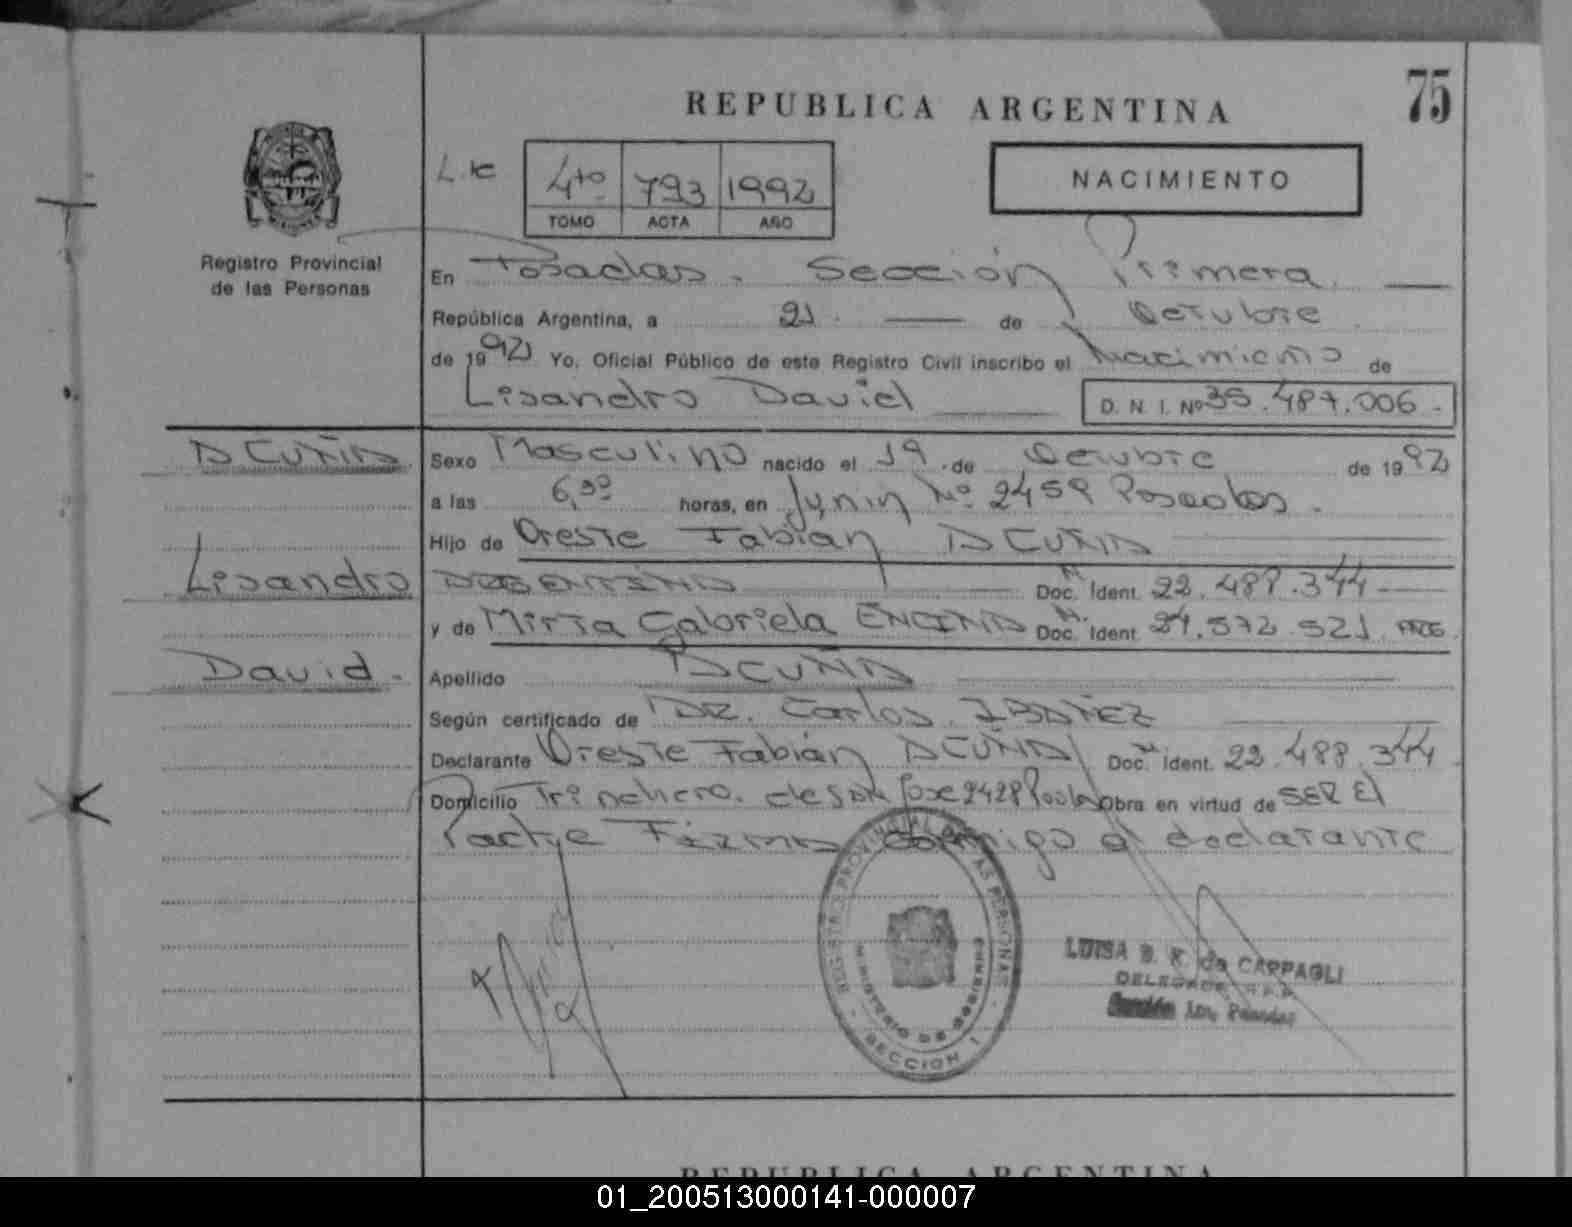 75
REPUBLICA ARGENTINA
NACIMIENTO
4to 793 1992
TOMO ACTA AÑO
Registro Provincial
de las Personas
En Posadas. Sección Primera
República Argentina, a 21 de Octubre
de 1992 Yo. Oficial Público de este Registro Civil inscribo el Nacimiento de
Lisandro David D. N. I. Nº 35.487.006.
ACUÑA
Sexo Masculino nacido el 19 de Octubre de 1992
a las 6,30 horas, en Junin Nº 2459 Posadas.
Hijo de Oreste Fabián ACUÑA
Lisandro
ARGENTINA Doc. Ident. 22.488.344
y de Mirta Gabriela ENCINA Doc. Ident. 24.572.521 ARG.
David.
Apellido ACUÑA
Según certificado de DR. Carlos IBAÑEZ
Declarante Oreste Fabián ACUÑA Doc. Ident. 22.488.344
Domicilio Trinchera de San Jose 2428 Posadas Obra en virtud de SER El
Padre FIRMA conmigo el declarante
REGISTRO PROVINCIAL DE LAS PERSONAS
MINISTERIO DE GOBIERNO
SECCION 1
LUISA B. K. de CAPPAGLI
DELEGADA R.P.P.
Sección 1ra. Posadas
REPUBLICA ARGENTINA
01_200513000141-000007